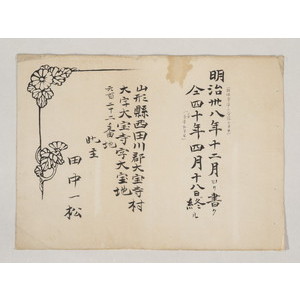 明治卅八年十二月ヨリ書ク
仝四十年四月十八日終ル
山形縣西田川郡大宝寺村
大字大宝寺字大宝地
此主
田中一松